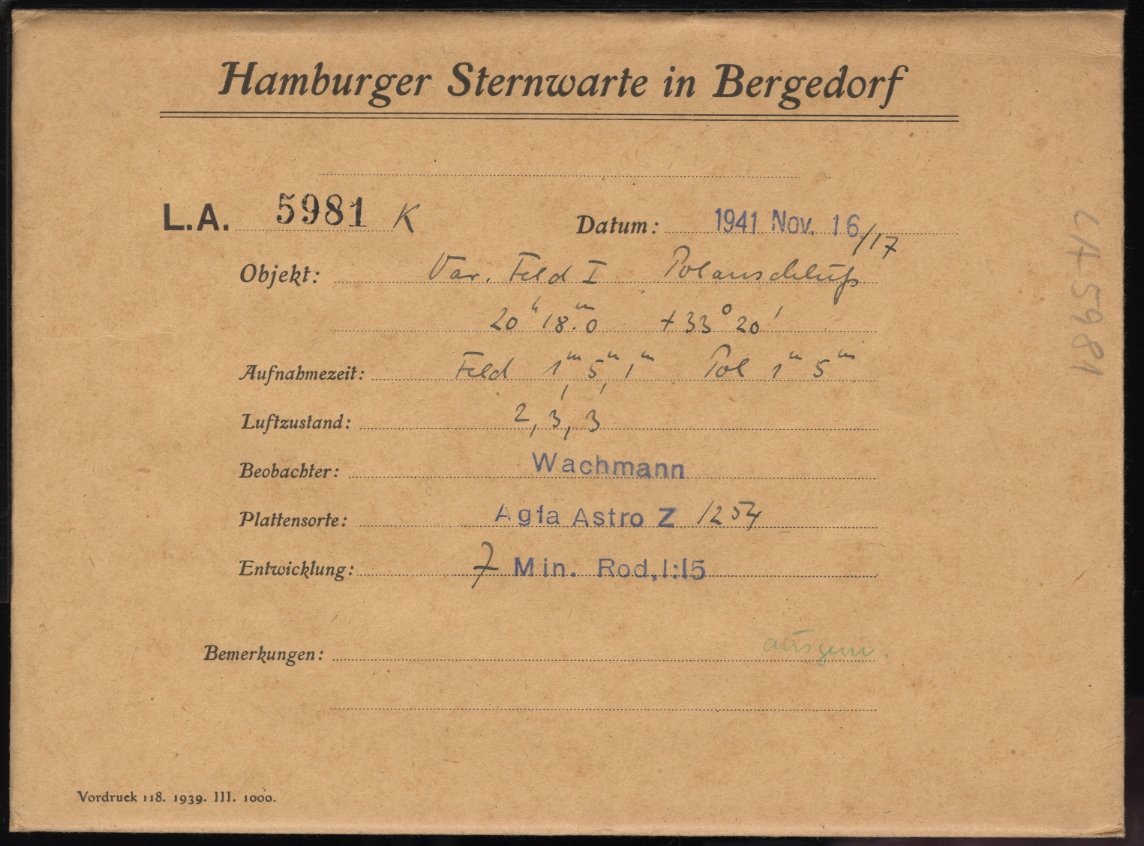 Hamburger Sternwarte in Bergedorf
L.A. 5981 K Datum: 1941 Nov. 16/17
Objekt: Var. Feld I Polanschluß
20ʰ 18.ᵐ0 +33° 20'
Aufnahmezeit: Feld 1ᵐ 5ᵐ, 1ᵐ Pol 1ᵐ 5ᵐ
Luftzustand: 2, 3', 3'
Beobachter: Wachmann
Plattensorte: Agfa Astro Z 1254
Entwicklung: 7 Min. Rod, 1:15
Bemerkungen: ausgem.
Vordruck 118. 1939. III. 1000.
LA 5981